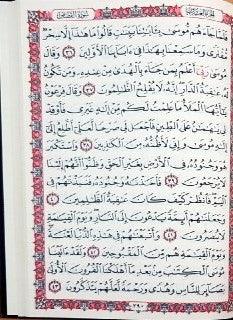 الجزء العشرون سورة القصص
فلما جاءهم موسى بآياتنا بينات قالوا ما هذا إلا سحر
مفترى وما سمعنا بهذا في آبائنا الأولين ٣٦ وقال
موسى ربي أعلم بمن جاء بالهدى من عنده ومن تكون
له عاقبة الدار إنه لا يفلح الظالمون ٣٧ وقال فرعون
يا أيها الملأ ما علمت لكم من إله غيري فأوقد
لي يا هامان على الطين فاجعل لي صرحا لعلي أطلع إلى
إله موسى وإني لأظنه من الكاذبين ٣٨ واستكبر
هو وجنوده في الأرض بغير الحق وظنوا أنهم إلينا
لا يرجعون ٣٩ فأخذناه وجنوده فنبذناهم في
اليم فانظر كيف كان عاقبة الظالمين ٤٠
وجعلناهم أئمة يدعون إلى النار ويوم القيامة
لا ينصرون ٤١ وأتبعناهم في هذه الدنيا لعنة
ويوم القيامة هم من المقبوحين ٤٢ ولقد آتينا
موسى الكتاب من بعد ما أهلكنا القرون الأولى
بصائر للناس وهدى ورحمة لعلهم يتذكرون ٤٣
٣٩٠